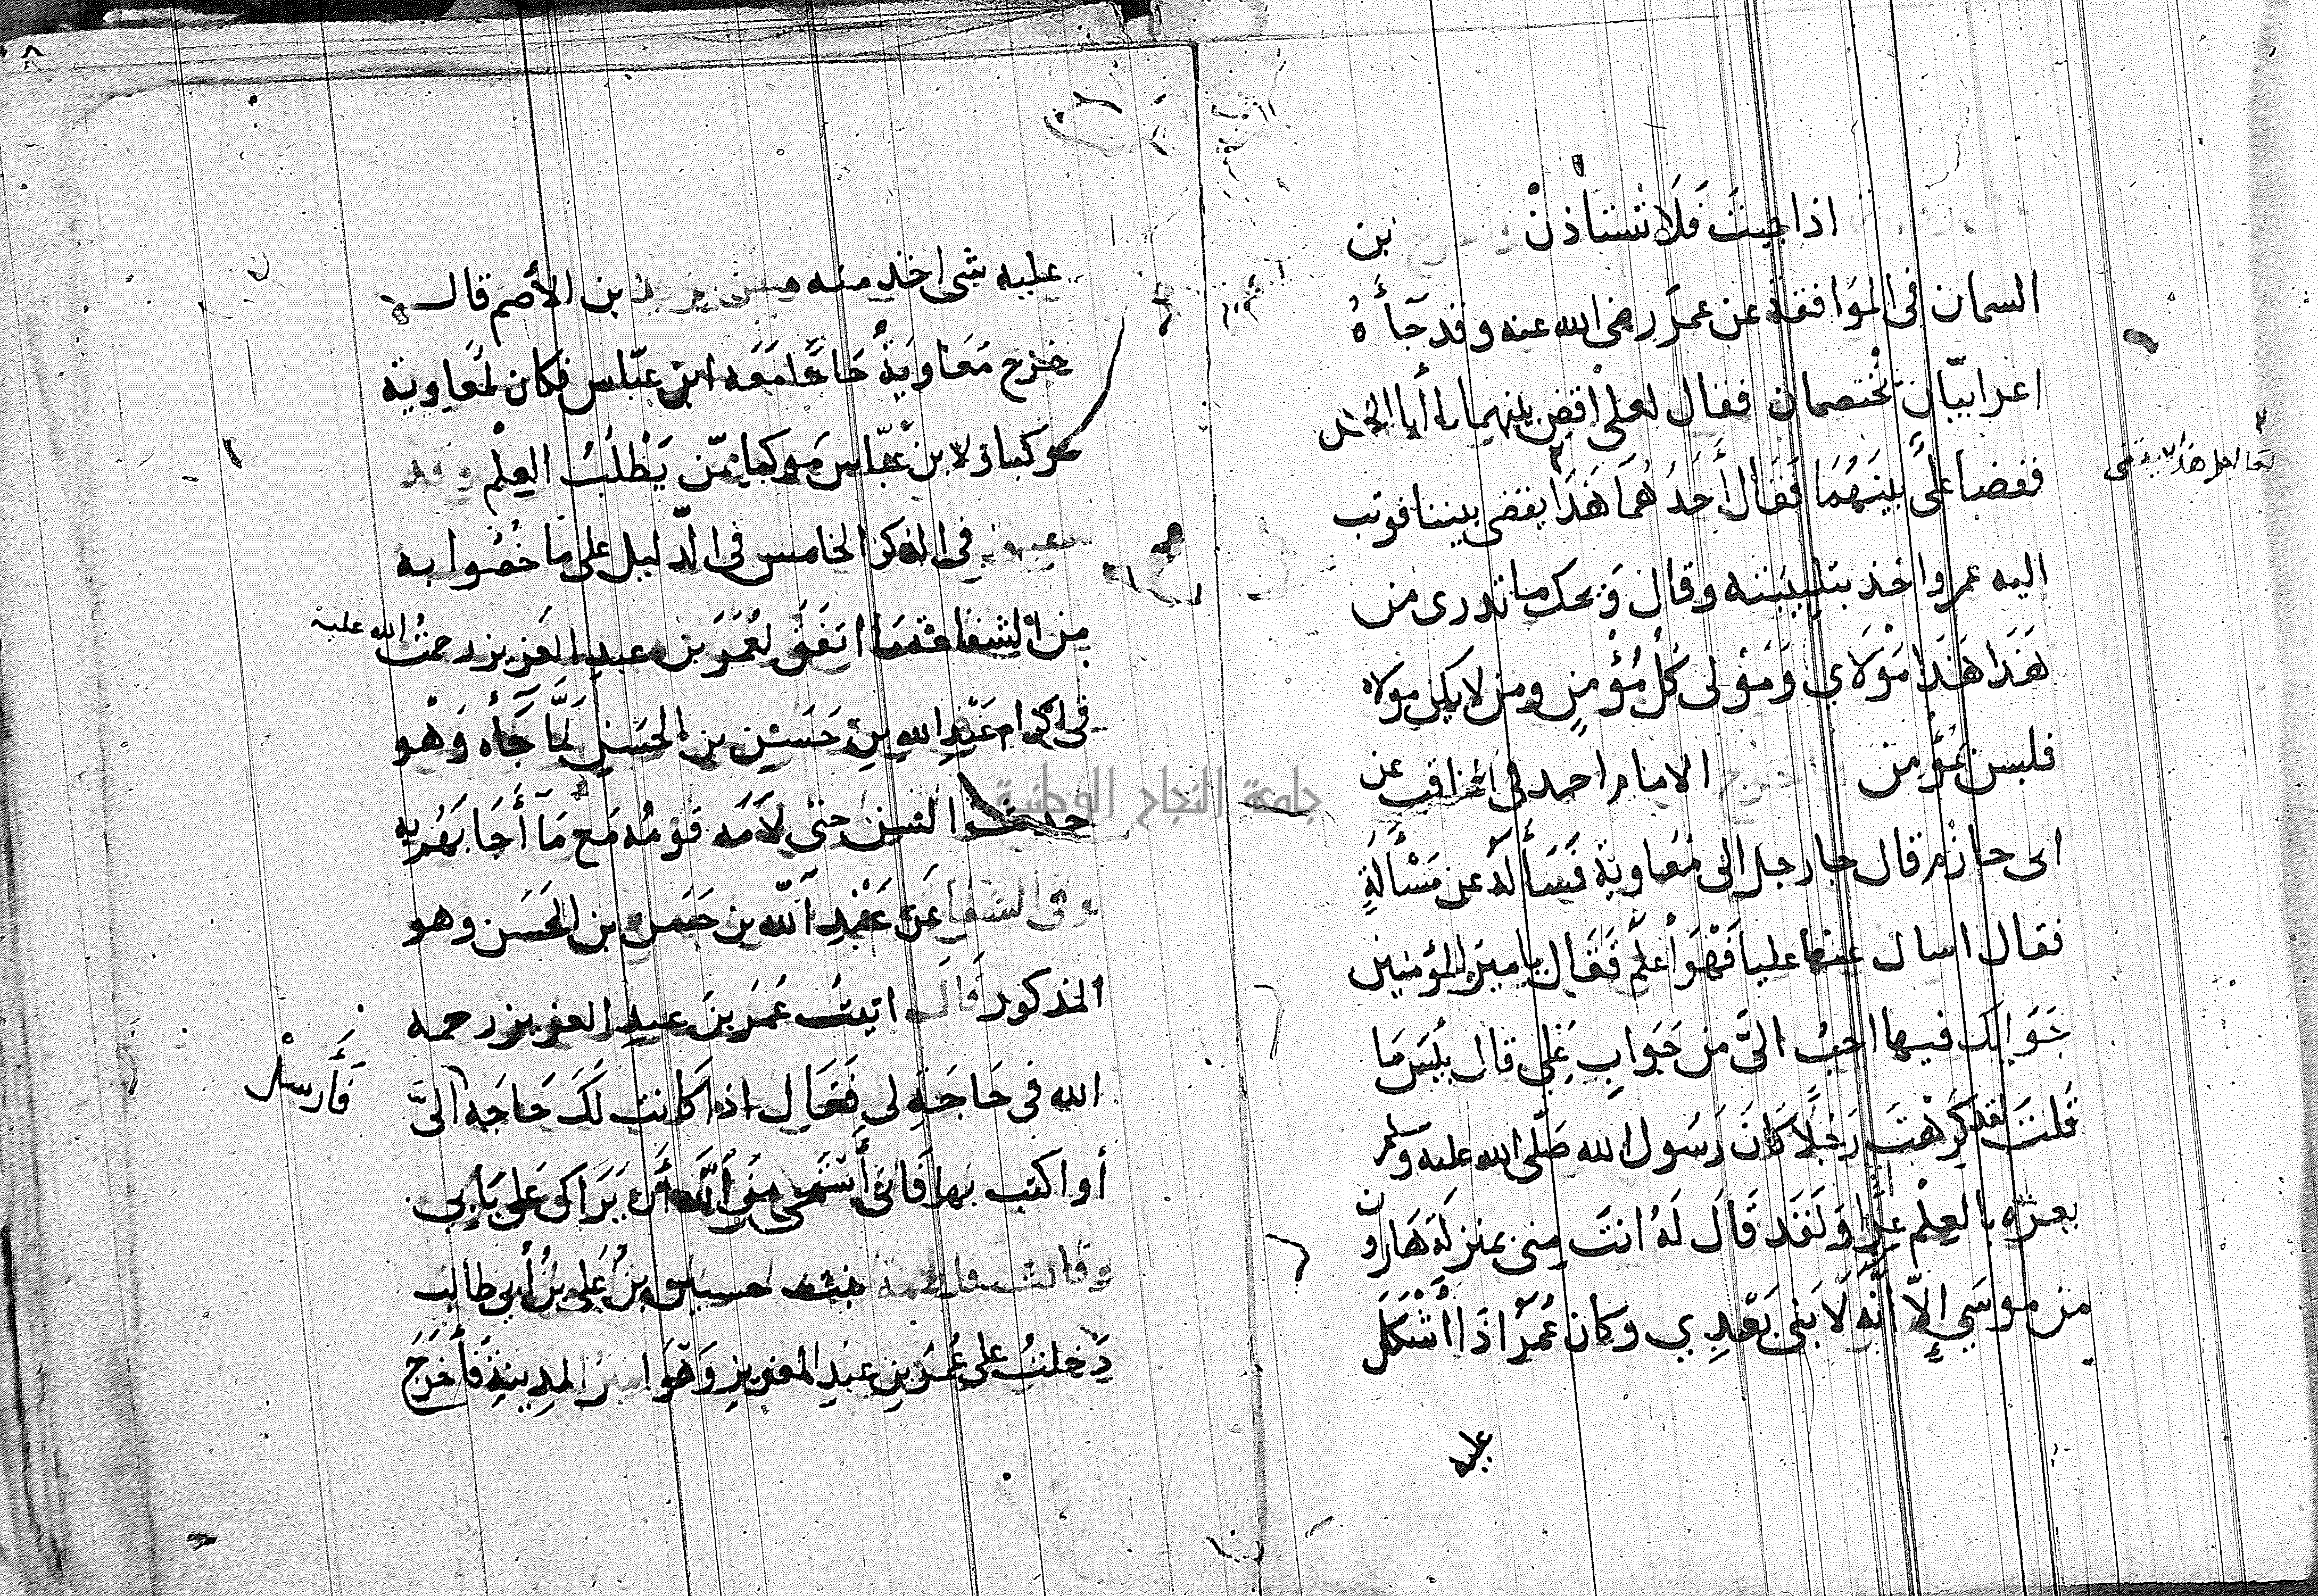 اذا جيت فَلَا تستأذنْ بن
السمان فى الموَافقة عن عمرَ رضى الله عنه وقد جَآءَهُ
اعرابيّانِ يختصمان فقال لعلى اقضِ بينهما يا أبا الحسن
فقضا علىٌّ بينَهُمَا فَقَالَ أَحَدُهُمَا هَذَا يقضى بيننا فوثب
اليه عمر واخذ بتلبيبته وقال وَيحك ما تدرى من
هَذَا هَذَا مَوْلَاي وَمَوْلى كُلّ مُؤْمِنٍ ومن لا يكن مولاه
فليس بمُؤمن الامام احمد فى المناقب عن
ابى حازم قال جا رجل الى مُعَاوية فَسَأَلَهُ عن مَسْأَلَةٍ
فقال اسال عنها عليا فَهْوَ أعلَم فَقَال يامير المؤمنين
جَوَابك فيها احبُّ الىَّ من جَوَابِ عَلِي قال بئسَ مَا
قلتَ لقد كرهتَ رَجُلًا كَانَ رَسُول الله صَلَّى الله عليه وسلم
بعزه بالعِلْم عزا وَلَقَد قَالَ لَهُ انتَ مِنى بمنزلَةِ هَارون
من موسَي إلّا أنَّه لَا نبىَ بَعْدِي وكان عُمَر اذَا أَشْكَلَ
عليه
عليه شى اخذ منه بن الأصم قال
خرج مُعَاوِيَةُ حَاجًّا مَعَه ابن عبّاس فكان لمُعَاوية
موكبا ولابن عَبّاس مَوكبا ممّن يَطْلُبُ العِلْم
فى الذكر الخامس فى الدّليل على مَا خُصُّوا به
مِنَ الشفاعة مَا اتفَقَ لعُمَرَ بن عبد العَزيز رحمتُ الله عليه
فى اكرام عَبْدِ الله بن حَسَن بن الحسَن لمَّا جَآءَه وَهْو
حديث السن حتى لَامَه قومُه مَعَ مَا أَجَابَهُم به
وفى الشفا عَن عَبْدِ الله بن حَسَن بن الحَسَن وهو
المذكور قال اتيتُ عُمَر بنَ عبدِ العزيز رحمه
الله فى حَاجَةٍ لى فَقَال اذا كانت لَكَ حَاجَه الىَّ
فَأَرسلْ
أو اكتب بها فَانى أَستحى مِنَ اللَّه أَن يَرَاكَ عَلى بَابى
وقالت فاطمة بنت حسين بنُ عَلى بنُ أبي طالب
دَخلتُ على عُمَر بن عبد العزيز وَهْوَ امير المدينَةِ فَأَخرَجَ